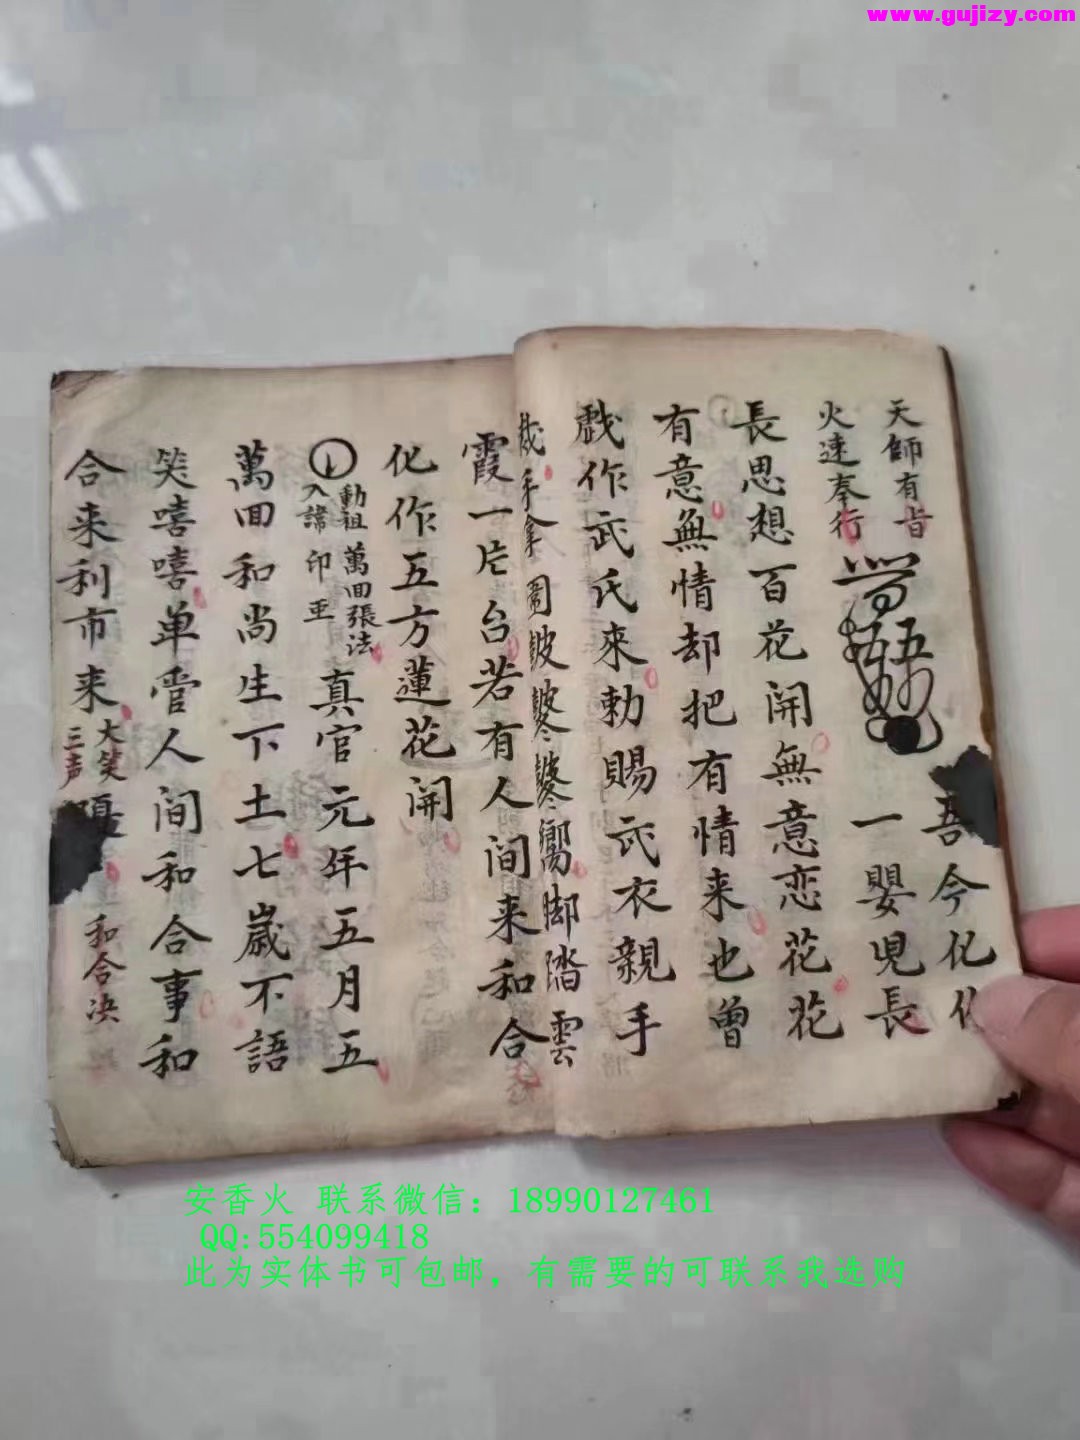 www.gujizy.com
天師有旨
火速奉行
吾今化
一嬰兒長
長思想百花開無意恋花花
有意無情却把有情来也曾
戲作武氏來勅賜武衣親手
手拿圖皷婆婆嚮脚踏雲
霞一片台若有人间来和合
化作五方蓮花開
動祖萬回張法
入諱印
真官元年五月五
萬回和尚生下土七歲不語
笑嘻嘻单管人间和合事和
合来利市来
大笑
三声
和合决
安香火 联系微信：18990127461
QQ:554099418
此为实体书可包邮，有需要的可联系我选购